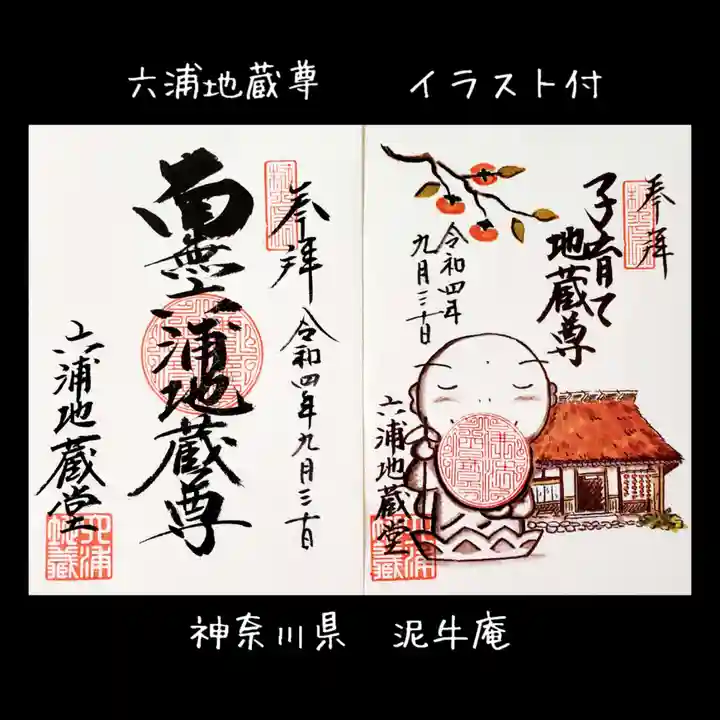 六浦地蔵尊
イラスト付
奉拝
令和四年九月三十日
南無六浦地蔵尊
六浦地蔵堂
六浦地蔵
奉拝
子育て
地蔵尊
令和四年
九月三十日
六浦地蔵堂
神奈川県 泥牛庵